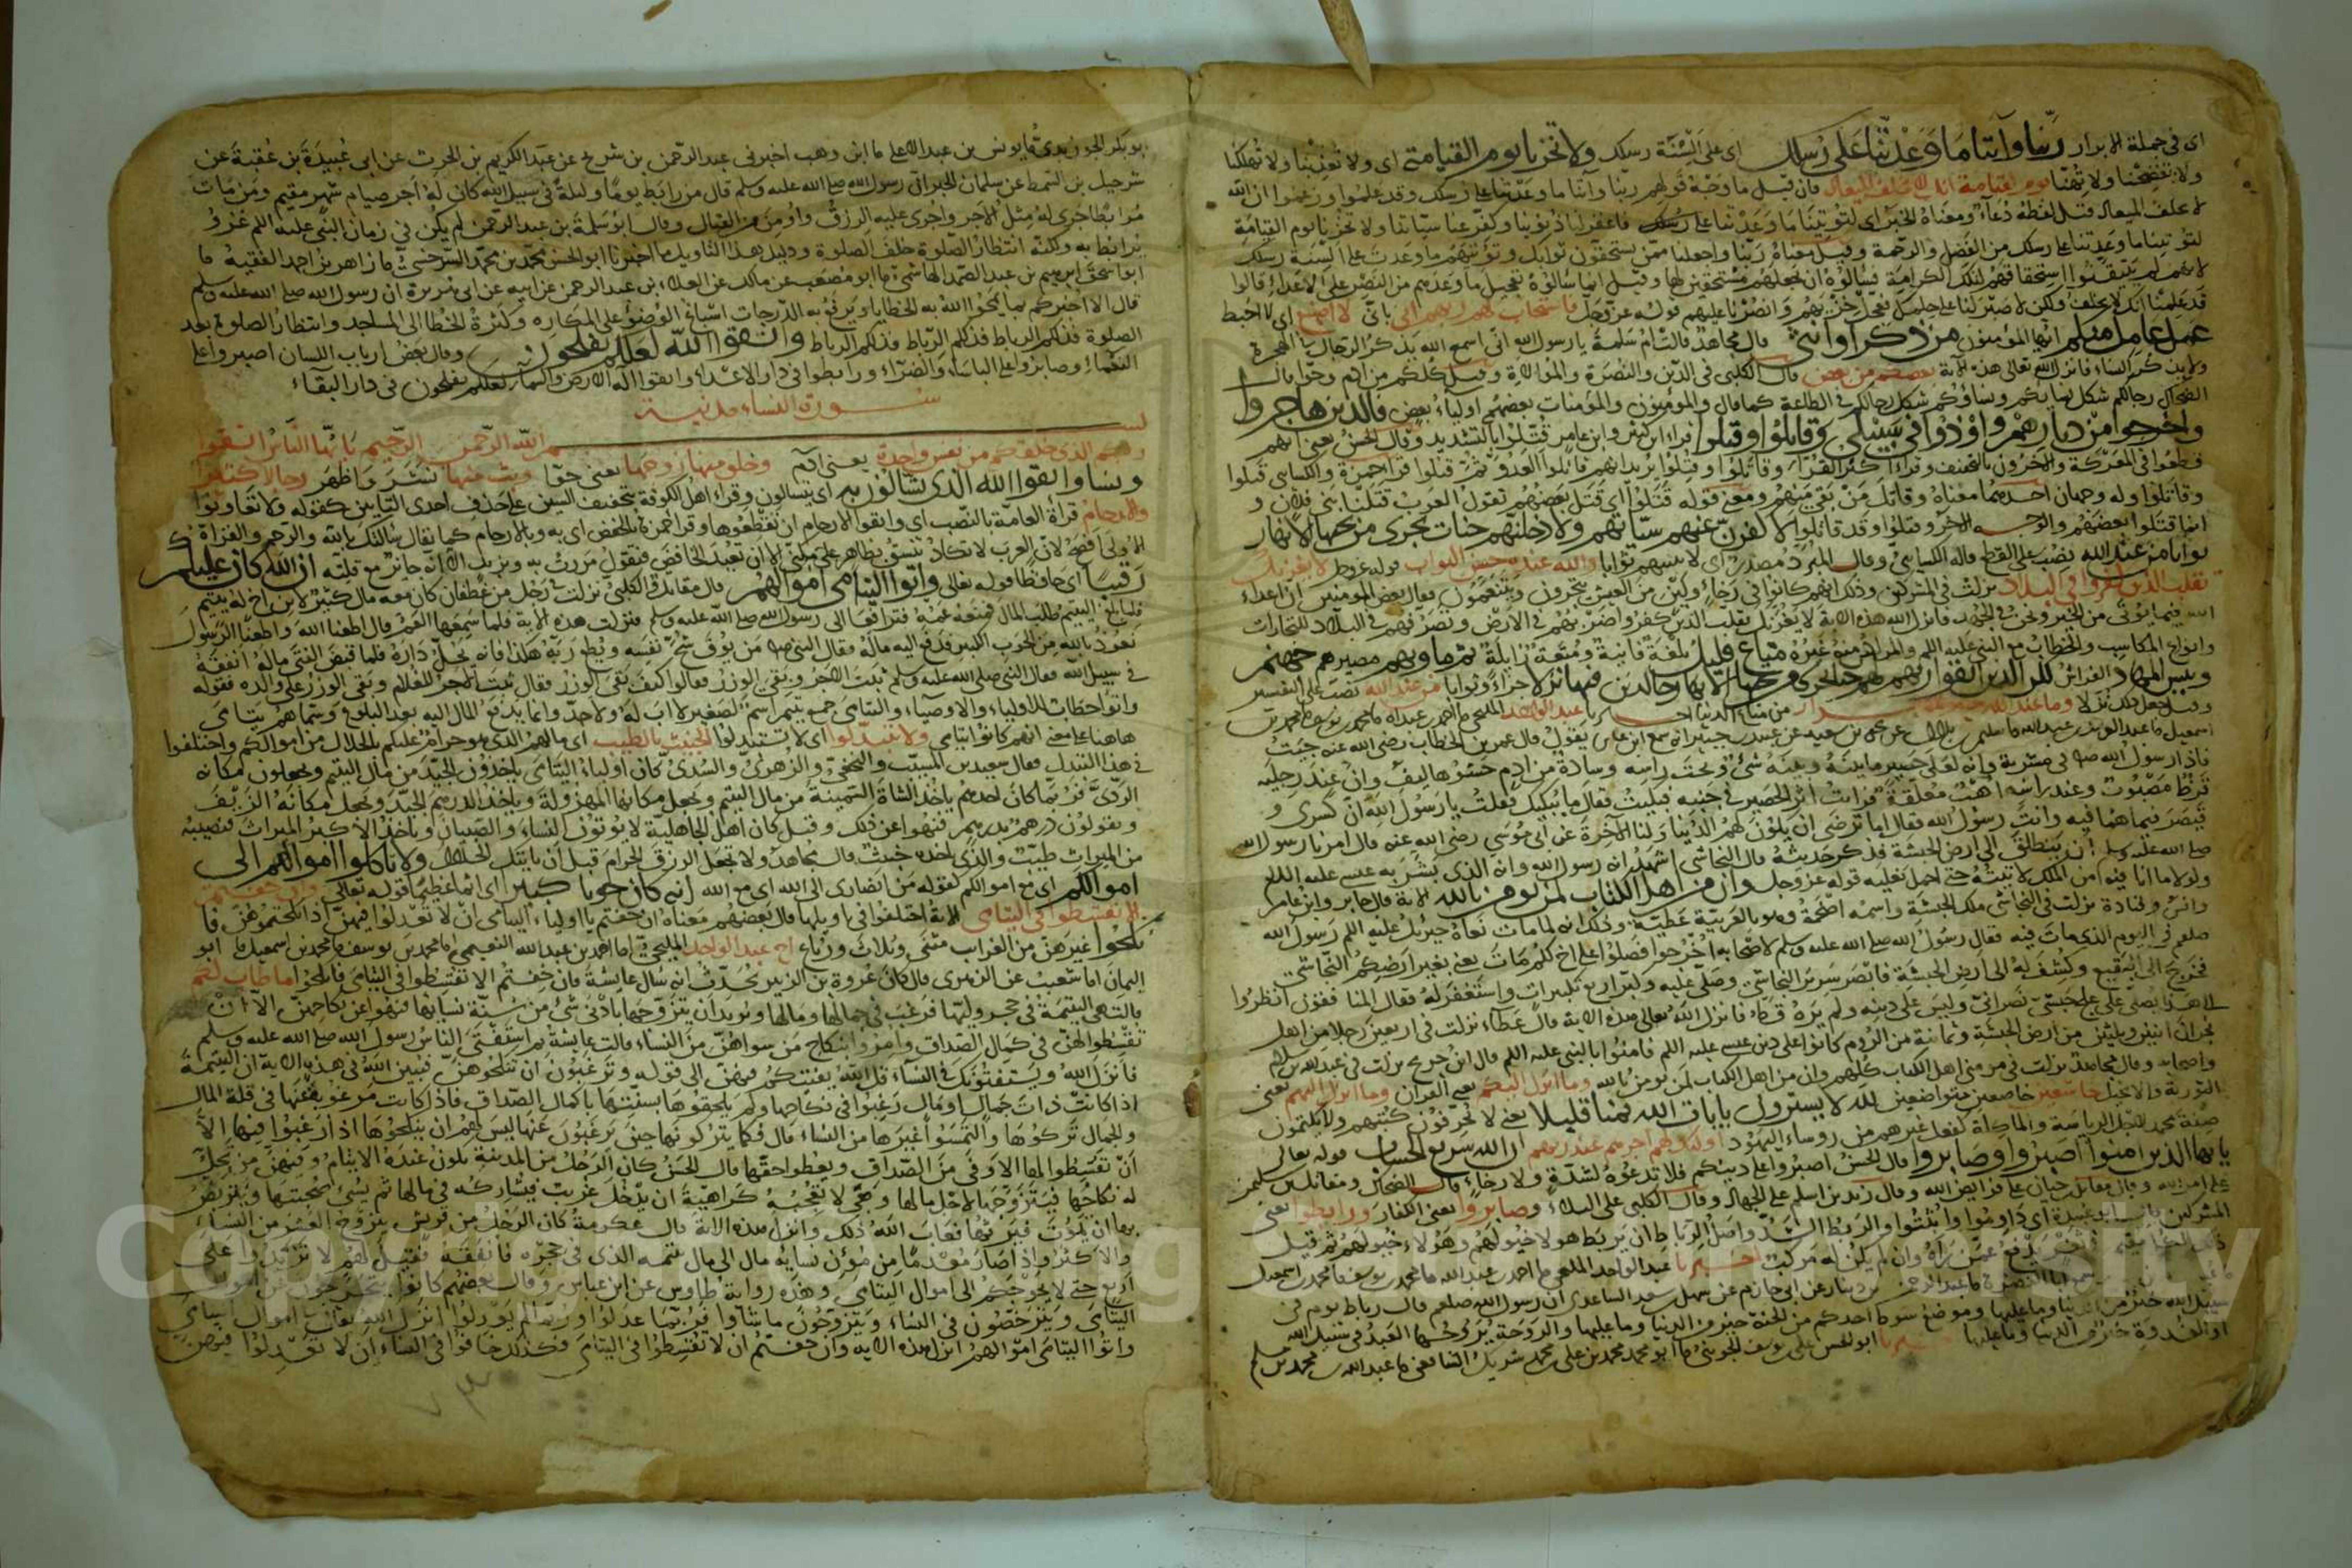 اى فى جملة الابرار ربنا وآتنا ما وعدتنا على رسلك اى على السنة رسلك ولا تخزنا يوم القيامة اى ولا تعذبنا ولا تهلكنا
ولا تفضحنا ولا تهنا يوم القيامة انك لا تخلف الميعاد فان قيل ما وجه قولهم ربنا وآتنا ما وعدتنا على رسلك وقد علموا وزعموا ان الله
لا يخلف الميعاد قيل لفظه دعاء ومعناه الخبر اى لتؤتينا ما وعدتنا على رسلك فاغفر لنا ذنوبنا وكفر عنا سياتنا ولا تخزنا يوم القيامة
لتؤتينا ما وعدتنا على رسلك من الفضل والرحمة وقيل معناه ربنا واجعلنا ممن يستحقون ثوابك وتؤتيهم ما وعدت على السنة رسلك
لانهم لم يتيقنوا استحقاقهم لتلك الكرامة فسالوه ان يجعلهم مستحقين لها وقيل انما سالوه تعجيل ما وعدهم من النصر على الاعداء قالوا
قد علمنا انك لا تخلف ولكن لا صبر لنا على حلمك فعجل خزيهم وانصرنا عليهم قوله عز وجل فاستجاب لهم ربهم انى بانى لا اضيع اى لا احبط
عمل عامل منكم ايها المؤمنون من ذكر او انثى قال مجاهد قالت ام سلمة يا رسول الله انى اسمع الله يذكر الرجال بالهجرة
ولا يذكر النساء فانزل الله تعالى هذه الآية بعضكم من بعض قال الكلبى فى الدين والنصرة والموالاة وقيل كلكم من ادم وحوا وقال
الضحاك رجالكم شكل نسايكم ونساؤكم شكل رجالكم فى الطاعة كما قال والمؤمنون والمؤمنات بعضهم اولياء بعض فالذين هاجروا
واخرجوا من ديارهم واوذوا فى سبيلى وقاتلوا وقتلوا قراء ابن كثير وابن عامر قتلوا بالتشديد وقال الحسن يعنى انهم
قطعوا فى المعركة والآخرون بالتخفيف وقراء اكثر القراء وقاتلوا وقتلوا يريد انهم قاتلوا العدو ثم قتلوا وقرا حمزة والكساى قتلوا
وقاتلوا وله وجهان احدهما معناه وقاتل من بقى منهم ومعنى قوله قتلوا اى قتل بعضهم تقول العرب قتلنا بنى فلان و
انما قتلوا بعضهم والوجه الاخر وقتلوا وقد قاتلوا لاكفرن عنهم سياتهم ولادخلنهم جنات تجرى من تحتها الانهار
ثوابا من عند الله نصب على القطع قاله الكساى وقال المبرد مصدر اى لاثيبنهم ثوابا والله عنده حسن الثواب قوله عز وجل لا يغرنك
تقلب الذين كفروا فى البلاد نزلت فى المشركين وذلك انهم كانوا فى رخاء ولين من العيش يتجرون ويتنعمون فقال بعض المومنين ان اعداء
الله فيما نرى من الخير ونحن فى الجهد فانزل الله هذه الاية لا يغرنك تقلب الذين كفروا ضربهم فى الارض وتصرفهم فى البلاد للتجارات
وانواع المكاسب والخطاب مع النبى عليه اللم والمراد منه غيره متاع قليل بلغة فانية ومتعة زايلة ثم ماويهم مصيرهم جهنم
وبيس المهاد الفراش لكن الذين اتقوا ربهم لهم جنات تجرى من تحتها الانهار خالدين فيها نزلا جزاء وثوابا من عند الله نصب على التفسير
وقيل جعل ذلك نزلا وما عند الله خير للابرار من متاع الدنيا اخبرنا عبد الواحد المليحى
فاذا رسول الله صلعم فى مشربة وانه لعلى حصير ما بينه وبينه شىء وتحت راسه وسادة من ادم حشوها ليف وان عند رجليه
قرظ مصبوب وعند راسه اهب معلقة فرايت اثر الحصير فى جنبه فبكيت فقال ما يبكيك فقلت يا رسول الله ان كسرى و
قيصر فيما هما فيه وانت رسول الله فقال اما ترضى ان يكون لهم الدنيا ولنا الآخرة عن ابى موسى رضى الله عنه قال امرنا رسول الله
صلى الله عليه وسلم ان ننطلق الى ارض الحبشة فذكر حديثه قال النجاشى اشهد انه رسول الله وانه الذى بشر به عيسى عليه اللم
ولولا ما انا فيه من الملك لاتيته حتى احمل نعليه قوله عز وجل وان من اهل الكتاب لمن يومن بالله الآية قال جابر وابن عباس
وانس وقتادة نزلت فى النجاشى ملك الحبشة واسمه اصحمة وهو بالعربية عطية وذلك انه لما مات نعاه جبريل عليه اللم رسول الله
صلعم فى اليوم الذى مات فيه فقال رسول الله صلى الله عليه وسلم لاصحابه اخرجوا فصلوا على اخ لكم مات بغير ارضكم النجاشى
فخرج الى البقيع وكشف له الى ارض الحبشة فابصر سرير النجاشى وصلى عليه وكبر اربع تكبيرات واستغفر له فقال المنافقون انظروا
الى هذا يصلى على علج حبشى نصرانى وليس على دينه ولم يره قط فانزل الله تعالى هذه الاية قال عطاء نزلت فى اربعين رجلا من اهل
نجران اثنين وثلثين من ارض الحبشة وثمانية من الروم كانوا على دين عيسى عليه اللم فامنوا بالنبى عليه اللم قال ابن جريج نزلت فى عبد الله بن سلام
واصحابه وقال مجاهد نزلت فى مومنى اهل الكتاب كلهم وان من اهل الكتاب لمن يومن بالله وما انزل اليكم يعنى القران وما انزل اليهم يعنى
التورية والانجيل خاشعين خاضعين متواضعين لله لا يشترون بايات الله ثمنا قليلا يعنى لا يحرفون كتبهم ولا يكتمون
صفة محمد لاجل الرياسة والماكلة كفعل غيرهم من روساء اليهود اولئك لهم اجرهم عند ربهم ان الله سريع الحساب قوله تعالى
يايها الذين امنوا اصبروا وصابروا قال الحسن اصبروا على دينكم فلا تدعوه لشدة ولا رخاء وقال الضحاك ومقاتل بن سليمن
على امر الله وقال مقاتل بن حيان على فرايض الله وقال زيد بن اسلم على الجهاد وقال الكلبى على البلاء وصابروا يعنى الكفار ورابطوا يعنى
المشركين قال ابو عبيدة اى داوموا واثبتوا والربط الشد واصل الرباط ان يربط هولاء خيولهم وهولاء خيولهم ثم قيل
وان لم يكن له مركب اخبرنا عبد الواحد المليحى احمد بن عبد الله محمد بن يوسف محمد بن اسمعيل
بن دينار عن ابى حازم عن سهل بن سعد الساعدى ان رسول الله صلعم قال رباط يوم فى
سبيل الله خير من الدنيا وما عليها وموضع سوط احدكم من الجنة خير من الدنيا وما عليها والروحة يروحها العبد فى سبيل الله
او الغدوة خير من الدنيا وما عليها اخبرنا ابو الحسن على بن يوسف الجوينى ابو محمد محمد بن على بن محمد بن شريك الشافعى عبد الله بن محمد بن مسلم
بو بكر الجوربدى يونس بن عبد الاعلى ابن وهب اخبرنى عبد الرحمن بن شريح عن عبد الكريم بن الحرث عن ابى عبيدة بن عقبة عن
شرحبيل بن السمط عن سلمان الخير ان رسول الله صلى الله عليه وسلم قال من رابط يوما وليلة فى سبيل الله كان له اجر صيام شهر مقيم ومن مات
مرابطا جرى له مثل الاجر واجرى عليه الرزق واومن من الفتان وقال ابو سلمة بن عبد الرحمن لم يكن فى زمان النبى عليه اللم غزو
يرابط به ولكنه انتظار الصلوة خلف الصلوة ودليل هذا التاويل ما اخبرنا ابو الحسن محمد بن محمد السرخسى زاهر بن احمد الفقيه
ابو اسحق ابرهيم بن عبد الصمد الهاشمى ابو مصعب عن مالك عن العلاء بن عبد الرحمن عن ابيه عن ابى هريرة ان رسول الله صلى الله عليه وسلم
قال الا اخبركم بما يمحوا الله به الخطايا ويرفع به الدرجات اسباغ الوضوء على المكاره وكثرة الخطا الى المساجد وانتظار الصلوة بعد
الصلوة فذلكم الرباط فذلكم الرباط فذلكم الرباط واتقوا الله لعلكم تفلحون وقال بعض ارباب اللسان اصبروا على
النعماء وصابروا على الباساء والضراء ورابطوا فى دار الاعداء واتقوا اله الارض والسماء لعلكم تفلحون فى دار البقاء
سورة النساء مدنية
بسم الله الرحمن الرحيم يا ايها الناس اتقوا
ربكم الذى خلقكم من نفس واحدة يعنى آدم وخلق منها زوجها يعنى حوا وبث منها نشر واظهر رجالا كثيرا
ونساء واتقوا الله الذى تسالون به اى تتسالون وقراء اهل الكوفة بتخفيف السين على حذف احدى التائين كقوله ولا تعاونوا
والارحام قراة العامة بالنصب اى واتقوا الارحام ان تقطعوها وقرا حمزة بالخفض اى به وبالارحام كما يقال سالتك بالله والرحم والقراة
الاولى افصح لان العرب لا تكاد تنسق بظاهر على مكنى الا ان تعيد الخافض فتقول مررت به وبزيد الا انه جايز مع قلته ان الله كان عليكم
رقيبا اى حافظا قوله تعالى واتوا اليتامى اموالهم قال مقاتل والكلبى نزلت فى رجل من غطفان كان معه مال كثير لابن اخ له يتيم
فلما بلغ اليتيم طلب المال فمنعه عمه فترافعا الى رسول الله صلى الله عليه وسلم فنزلت هذه الاية فلما سمعها العم قال اطعنا الله واطعنا الرسول
نعوذ بالله من الحوب الكبير فدفع اليه ماله فقال النبى صلعم من يوق شح نفسه ويطع ربه هكذا فانه يحل داره فلما قبض الفتى ماله انفقه
فى سبيل الله فقال النبى صلى الله عليه وسلم ثبت الاجر وبقى الوزر فقالوا كيف بقى الوزر فقال ثبت الاجر للغلام وبقى الوزر على والده فقوله
واتوا خطاب للاولياء والاوصياء واليتامى جمع يتيم اسم لصغير لا اب له ولا جد وانما يدفع المال اليه بعد البلوغ وسماهم يتامى
هاهنا على معنى انهم كانوا يتامى ولا تتبدلوا اى لا تستبدلوا الخبيث بالطيب اى مالهم الذى هو حرام عليكم بالحلال من اموالكم واختلفوا
فى هذا التبدل فقال سعيد بن المسيب والنخعى والزهرى والسدى كان اولياء اليتامى ياخذون الجيد من مال اليتيم ويجعلون مكانه
الردى فربما كان احدهم ياخذ الشاة السمينة من مال اليتيم ويجعل مكانها المهزولة وياخذ الدرهم الجيد ويجعل مكانه الزيف
ويقولون درهم بدرهم فنهوا عن ذلك وقيل كان اهل الجاهلية لا يورثون النساء والصبيان وياخذ الاكبر الميراث فنصيبه
من الميراث طيب والذى ياخذه خبيث قال مجاهد ولا تعجل الرزق الحرام قبل ان ياتيك الحلال ولا تاكلوا اموالهم الى
اموالكم اى مع اموالكم كقوله من انصارى الى الله اى مع الله انه كان حوبا كبيرا اى اثما عظيما قوله تعالى وان خفتم
الا تقسطوا فى اليتامى الاية اختلفوا فى تاويلها قال بعضهم معناه ان خفتم يا اولياء اليتامى ان لا تعدلوا فيهن اذا نكحتموهن فا
نكحوا غيرهن من الغراب مثنى وثلاث ورباع اخبرنا عبد الواحد المليحى احمد بن عبد الله النعيمى محمد بن يوسف محمد بن اسمعيل ابو
اليمان اما شعيب عن الزهرى قال كان عروة بن الزبير يحدث انه سال عايشة فان خفتم الا تقسطوا فى اليتامى فانكحوا ما طاب لكم
قالت هى اليتيمة فى حجر وليها فرغب فى جمالها ومالها ويريد ان يتزوجها بادنى شىء من سنة نسايها فنهوا عن نكاحهن الا ان
تقسطوا لهن فى كمال الصداق وامروا بنكاح من سواهن من النساء قالت عايشة ثم استفتى الناس رسول الله صلى الله عليه وسلم
فانزل الله ويستفتونك فى النساء قل الله يفتيكم فيهن الى قوله وترغبون ان تنكحوهن فبين الله فى هذه الاية ان اليتيمة
اذا كانت ذات جمال او مال رغبوا فى نكاحها ولم يلحقوها بسنتها باكمال الصداق فاذا كانت مرغوبة عنها فى قلة المال
والجمال تركوها والتمسوا غيرها من النساء قال فكما يتركونها حين يرغبون عنها ليس لهم ان ينكحوها اذا رغبوا فيها الا
ان تقسطوا لها الاوفى من الصداق ويعطوا حقها قال الحسن كان الرجل من المدينة يكون عنده الايتام وفيهن من يحل
له نكاحها فيتزوجها لاجل مالها وهى لا تعجبه كراهية ان يدخل غريب فيشاركه فى مالها ثم يسىء صحبتها ويتربص
بها ان تموت فيرثها فعاب الله ذلك وانزل هذه الاية قال عكرمة كان الرجل من قريش يتزوج العشر من النساء
والاكثر واذا صار معدما من مؤن نسايه مال الى مال يتيمه الذى فى حجره فانفقه فقيل لهم لا تزيدوا على
اربع حتى لا يحوجكم الى اموال اليتامى وهذه رواية طاوس عن ابن عباس وقال بعضهم كانوا يتحرجون عن اموال
اليتامى ويترخصون فى النساء ويتزوجون ما شاوا فربما عدلوا وربما لم يعدلوا
واتوا اليتامى اموالهم انزل هذه الاية وان خفتم ان لا تقسطوا فى اليتامى فكذلك خافوا فى النساء ان لا تعدلوا فيهن